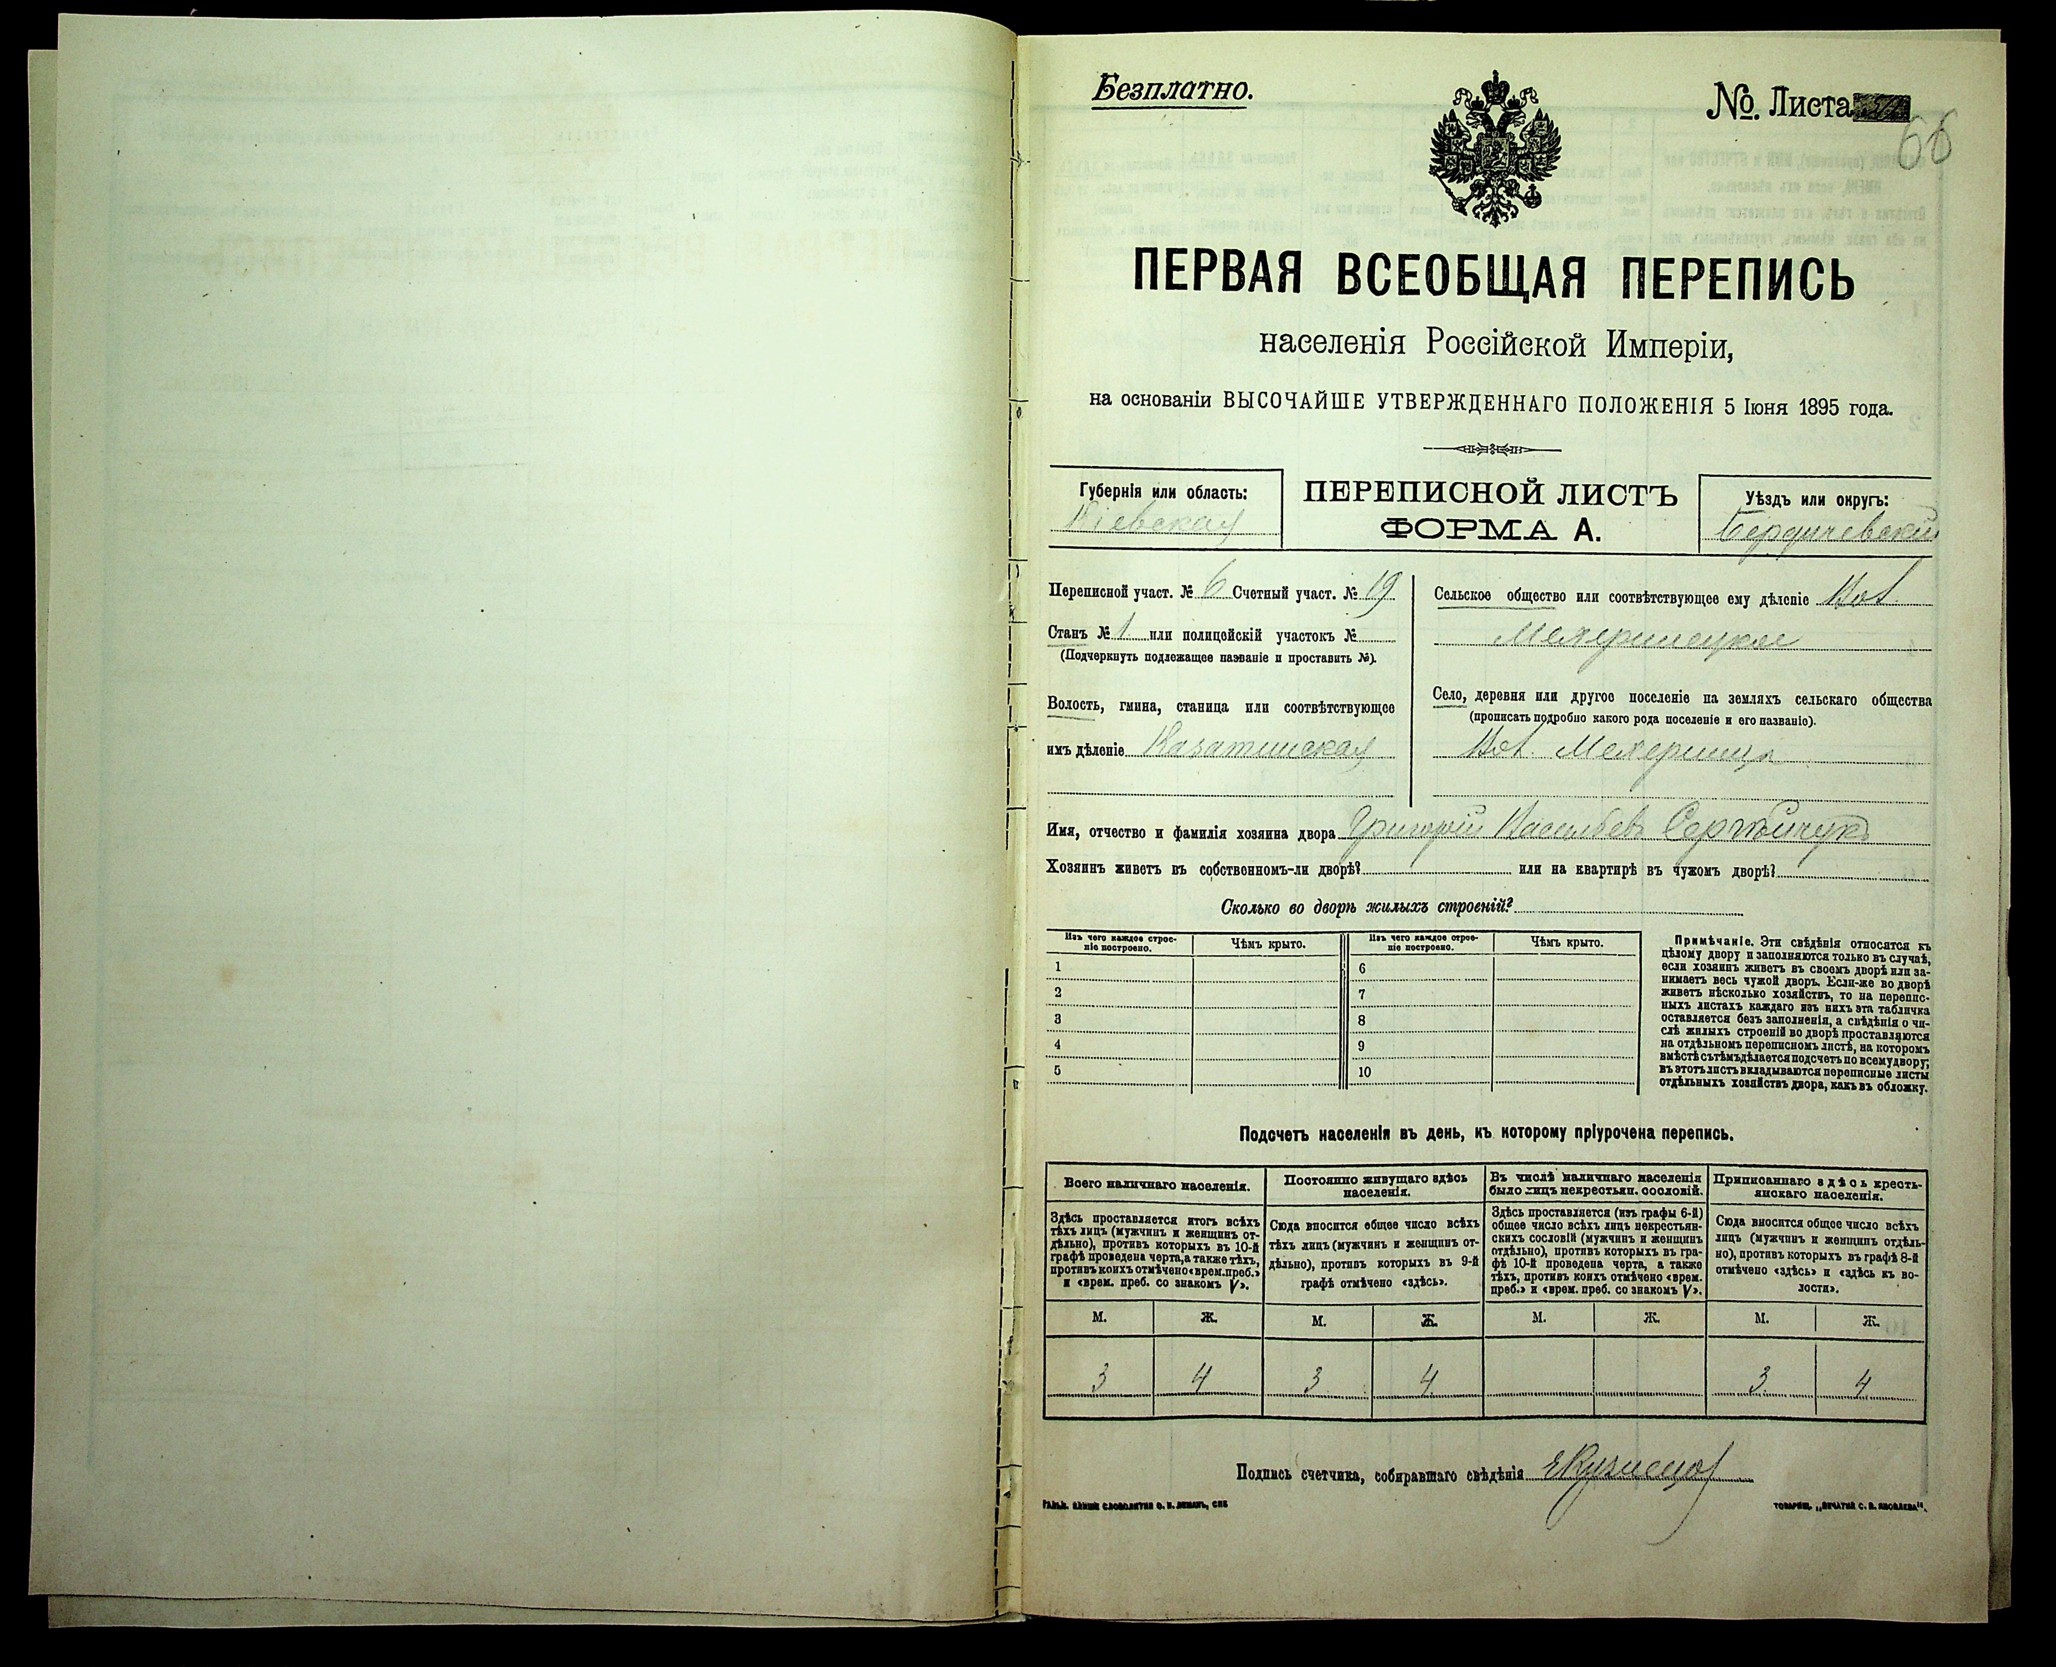 Безплатно.
№. Листа
66
ПЕРВАЯ ВСЕОБЩАЯ ПЕРЕПИСЬ
населенія Россійской Имперіи,
на основаніи ВЫСОЧАЙШЕ УТВЕРЖДЕННАГО ПОЛОЖЕНІЯ 5 Іюня 1895 года.
Губернія или область:
Кіевская
ПЕРЕПИСНОЙ ЛИСТЪ
ФОРМА А.
Уѣздъ или округъ:
Бердичевскій
Переписной участ. № 6 Счетный участ. № 19
Станъ № 1 или полицейскій участокъ №
(Подчеркнуть подлежащее названіе и проставить №).
Волость, гмина, станица или соотвѣтствующее
имъ дѣленіе Казатинская
Сельское общество или соотвѣтствующее ему дѣленіе
Село, деревня или другое поселеніе на земляхъ сельскаго общества
(прописать подробно какого рода поселеніе и его названіе).
Имя, отчество и фамилія хозяина двора Григорій Васильевъ
Хозяинъ живетъ въ собственномъ-ли дворѣ? или на квартирѣ въ чужомъ дворѣ?
Сколько во дворѣ жилыхъ строеній?
Изъ чего каждое строе-
ніе построено.
Чѣмъ крыто.
Изъ чего каждое строе-
ніе построено.
Чѣмъ крыто.
1 6
2 7
3 8
4 9
5 10
Примѣчаніе. Эти свѣдѣнія относятся къ
цѣлому двору и заполняются только въ случаѣ,
если хозяинъ живетъ въ своемъ дворѣ или за-
нимаетъ весь чужой дворъ. Если-же во дворѣ
живетъ нѣсколько хозяйствъ, то на перепис-
ныхъ листахъ каждаго изъ нихъ эта табличка
оставляется безъ заполненія, а свѣдѣнія о чи-
слѣ жилыхъ строеній во дворѣ проставляются
на отдѣльномъ переписномъ листѣ, на которомъ
вмѣстѣ съ тѣмъ дѣлается подсчетъ по всему двору;
въ этотъ листъ вкладываются переписные листы
отдѣльныхъ хозяйствъ двора, какъ въ обложку.
Подсчетъ населенія въ день, къ которому пріурочена перепись.
Всего наличнаго населенія.
Здѣсь проставляется итогъ всѣхъ
тѣхъ лицъ (мужчинъ и женщинъ от-
дѣльно), противъ которыхъ въ 10-й
графѣ проведена черта, а также тѣхъ,
противъ коихъ отмѣчено «врем. преб.»
и «врем. преб. со знакомъ V».
Постоянно живущаго здѣсь
населенія.
Сюда вносится общее число всѣхъ
тѣхъ лицъ (мужчинъ и женщинъ от-
дѣльно), противъ которыхъ въ 9-й
графѣ отмѣчено «здѣсь».
Въ числѣ наличнаго населенія
было лицъ некрестьян. сословій.
Здѣсь проставляется (изъ графы 6-й)
общее число всѣхъ лицъ некрестьян-
скихъ сословій (мужчинъ и женщинъ
отдѣльно), противъ которыхъ въ гра-
фѣ 10-й проведена черта, а также
тѣхъ, противъ коихъ отмѣчено «врем.
преб.» и «врем. преб. со знакомъ V».
Приписаннаго здѣсь кресть-
янскаго населенія.
Сюда вносится общее число всѣхъ
лицъ (мужчинъ и женщинъ отдѣль-
но), противъ которыхъ въ графѣ 8-й
отмѣчено «здѣсь» и «здѣсь къ во-
лости».
М. Ж. М. Ж. М. Ж. М. Ж.
3 4 3 4 3 4
Подпись счетчика, собиравшаго свѣдѣнія ЕКузнецов
ГАЛЬВ. КЛИШЕ СЛОВОЛИТНИ О. И. ЛЕМАНЪ, СПБ
ТОВАРИЩ. „ПЕЧАТНЯ С. П. ЯКОВЛЕВА“.